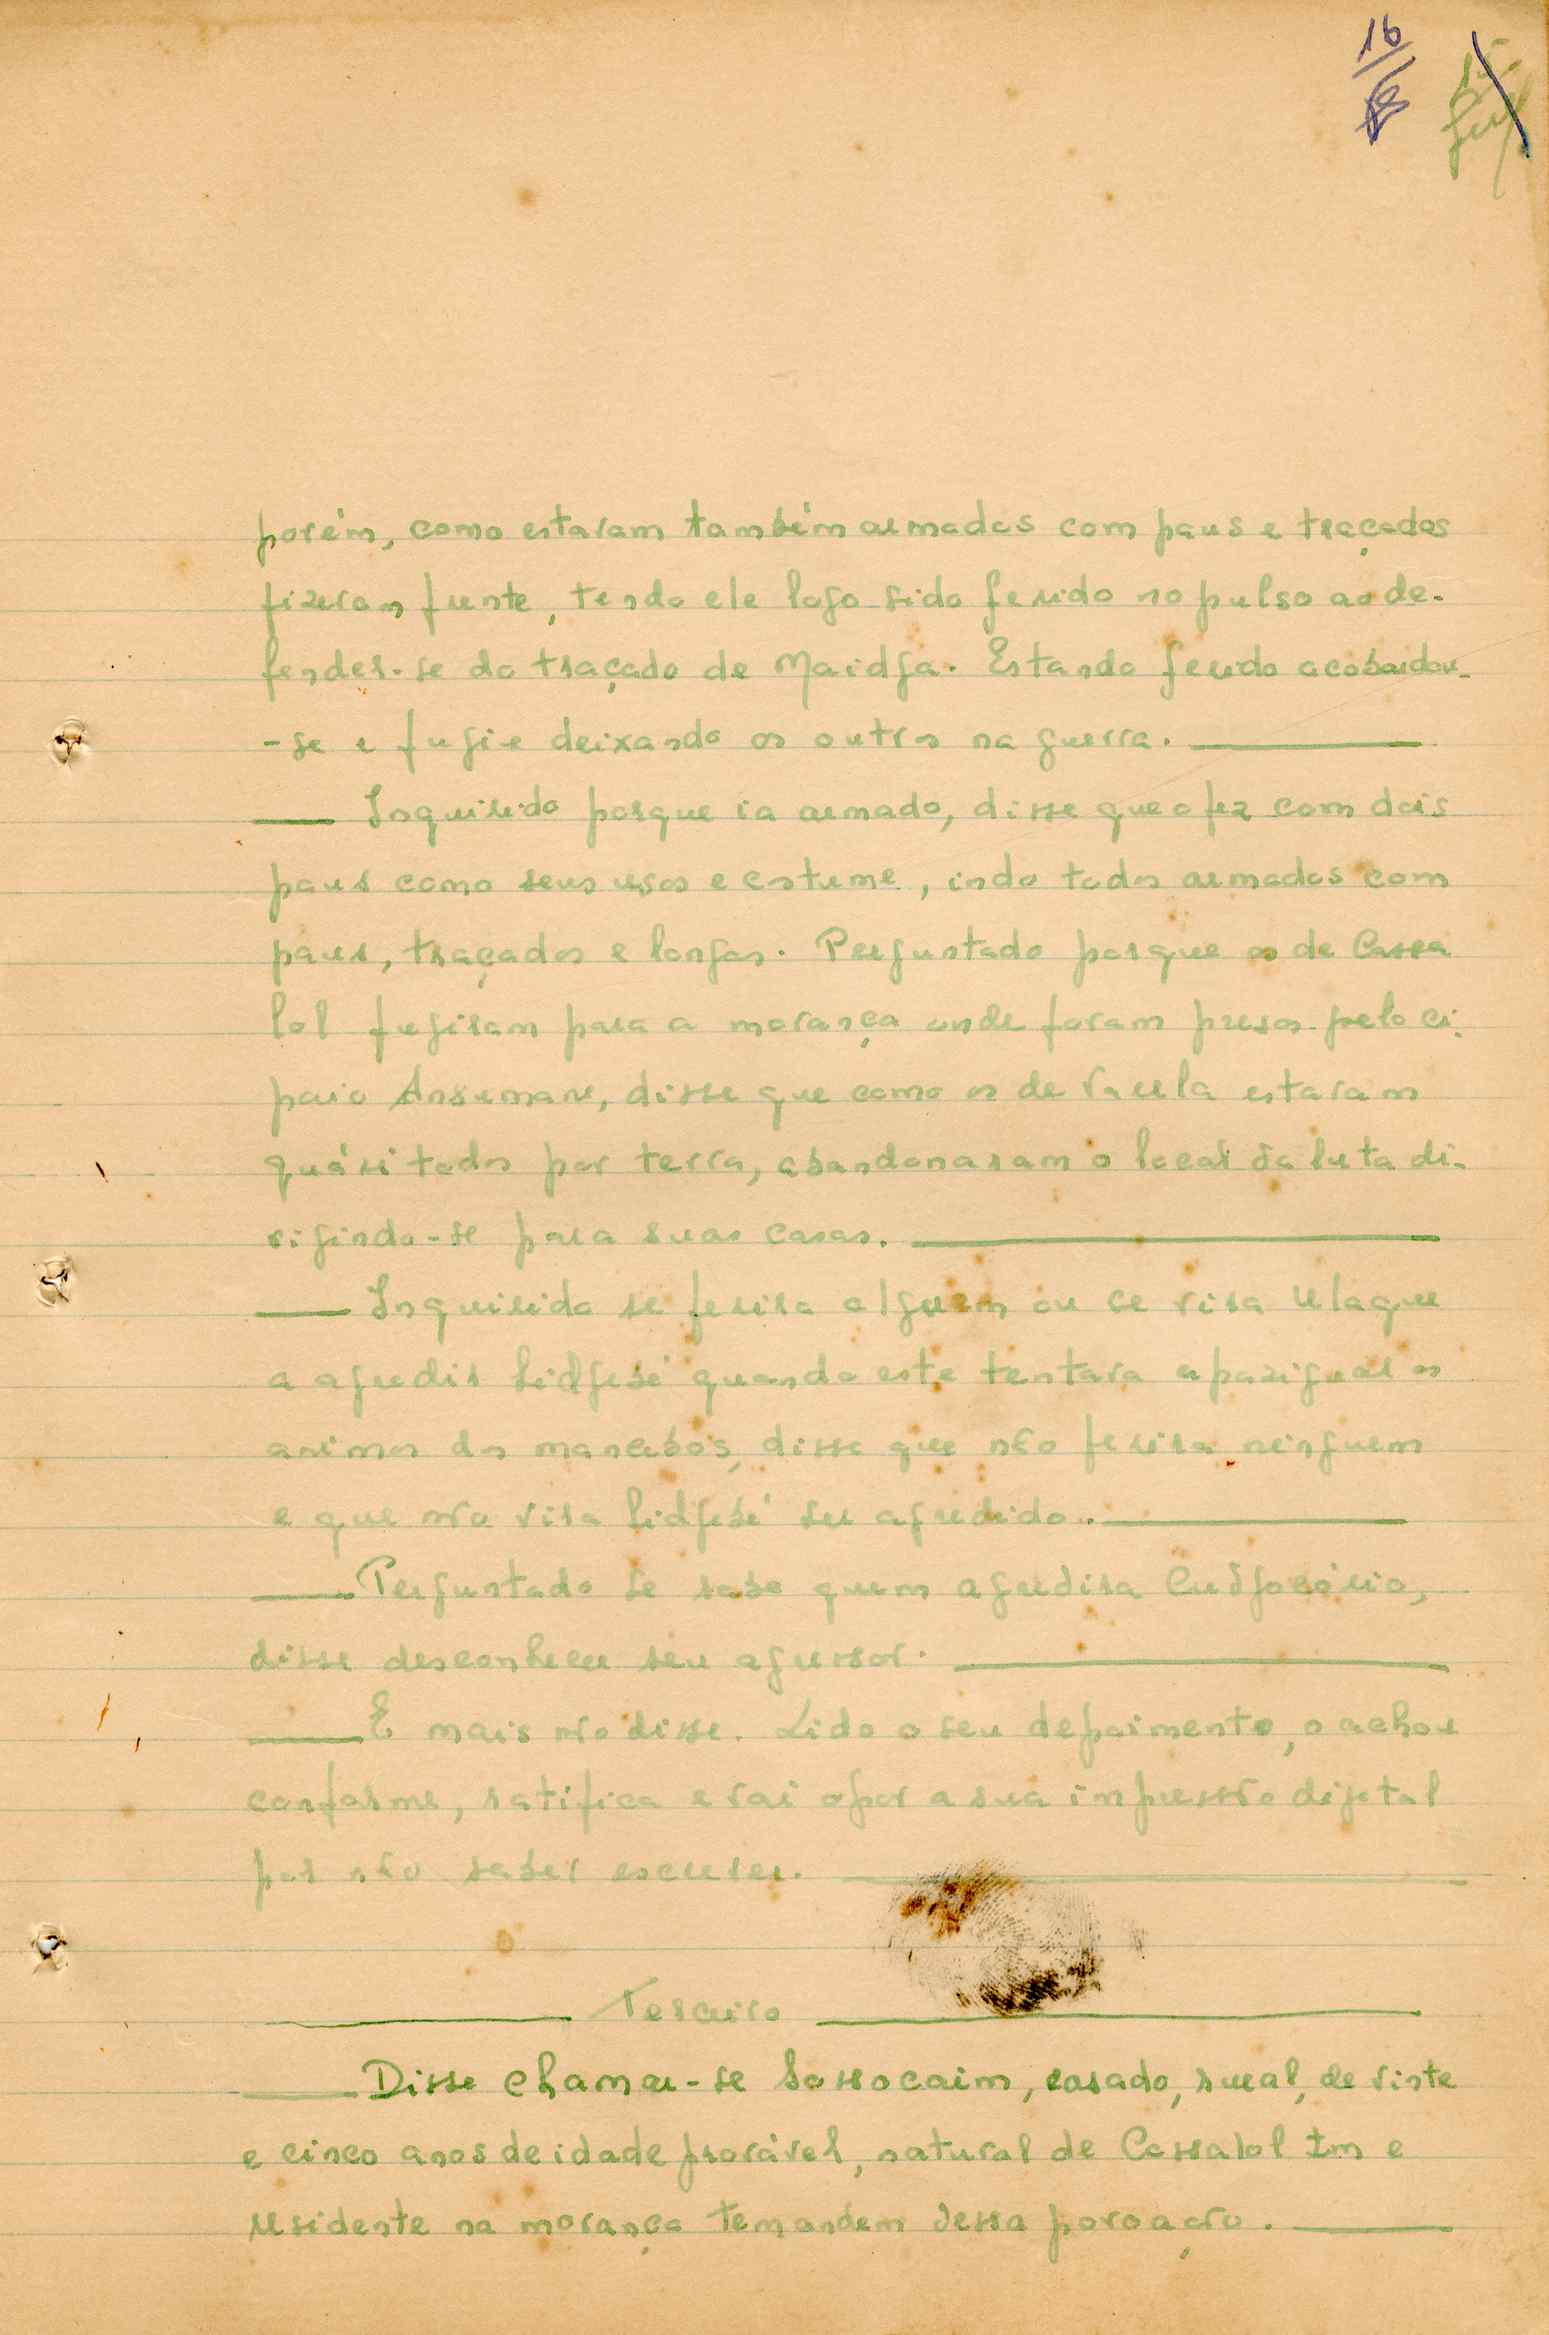 16
15
porém, como estavam também armados com paus e traçados
fizeram frente, tendo ele logo sido ferido no pulso ao de-
fender-se do traçado de Maidja. Estando ferido acobardou-
-se e fugiu deixando os outros na guerra.
Inquirido porque ia armado, disse que o fez com dois
paus como seus usos e costume, indo todos armados com
paus, traçados e longas. Perguntado porque os de Cassa
lol fugiram para a morança onde foram presos pelo ci-
paio Ansumane, disse que como os de Varela estavam
quási todos por terra, abandonaram o local da luta di-
rigindo-se para suas casas.
Inquirido se ferira alguem ou se vira Ulaque
a agredir Lidjebé quando este tentava apaziguar os
animos dos mancebos, disse que não ferira ninguem
e que não vira Lidjebé ser agredido.
Perguntado se sabe quem agredira
disse desconhecer seu agressor.
E mais não disse. Lido o seu depoimento, o achou
conforme, ratifica e vai apor a sua impressão digital
por não saber escrever.
Terceiro
Disse chamar-se Sossocaim, casado, rural, de vinte
e cinco anos de idade provável, natural de Cassalol Im e
residente na morança Temandem dessa povoação.